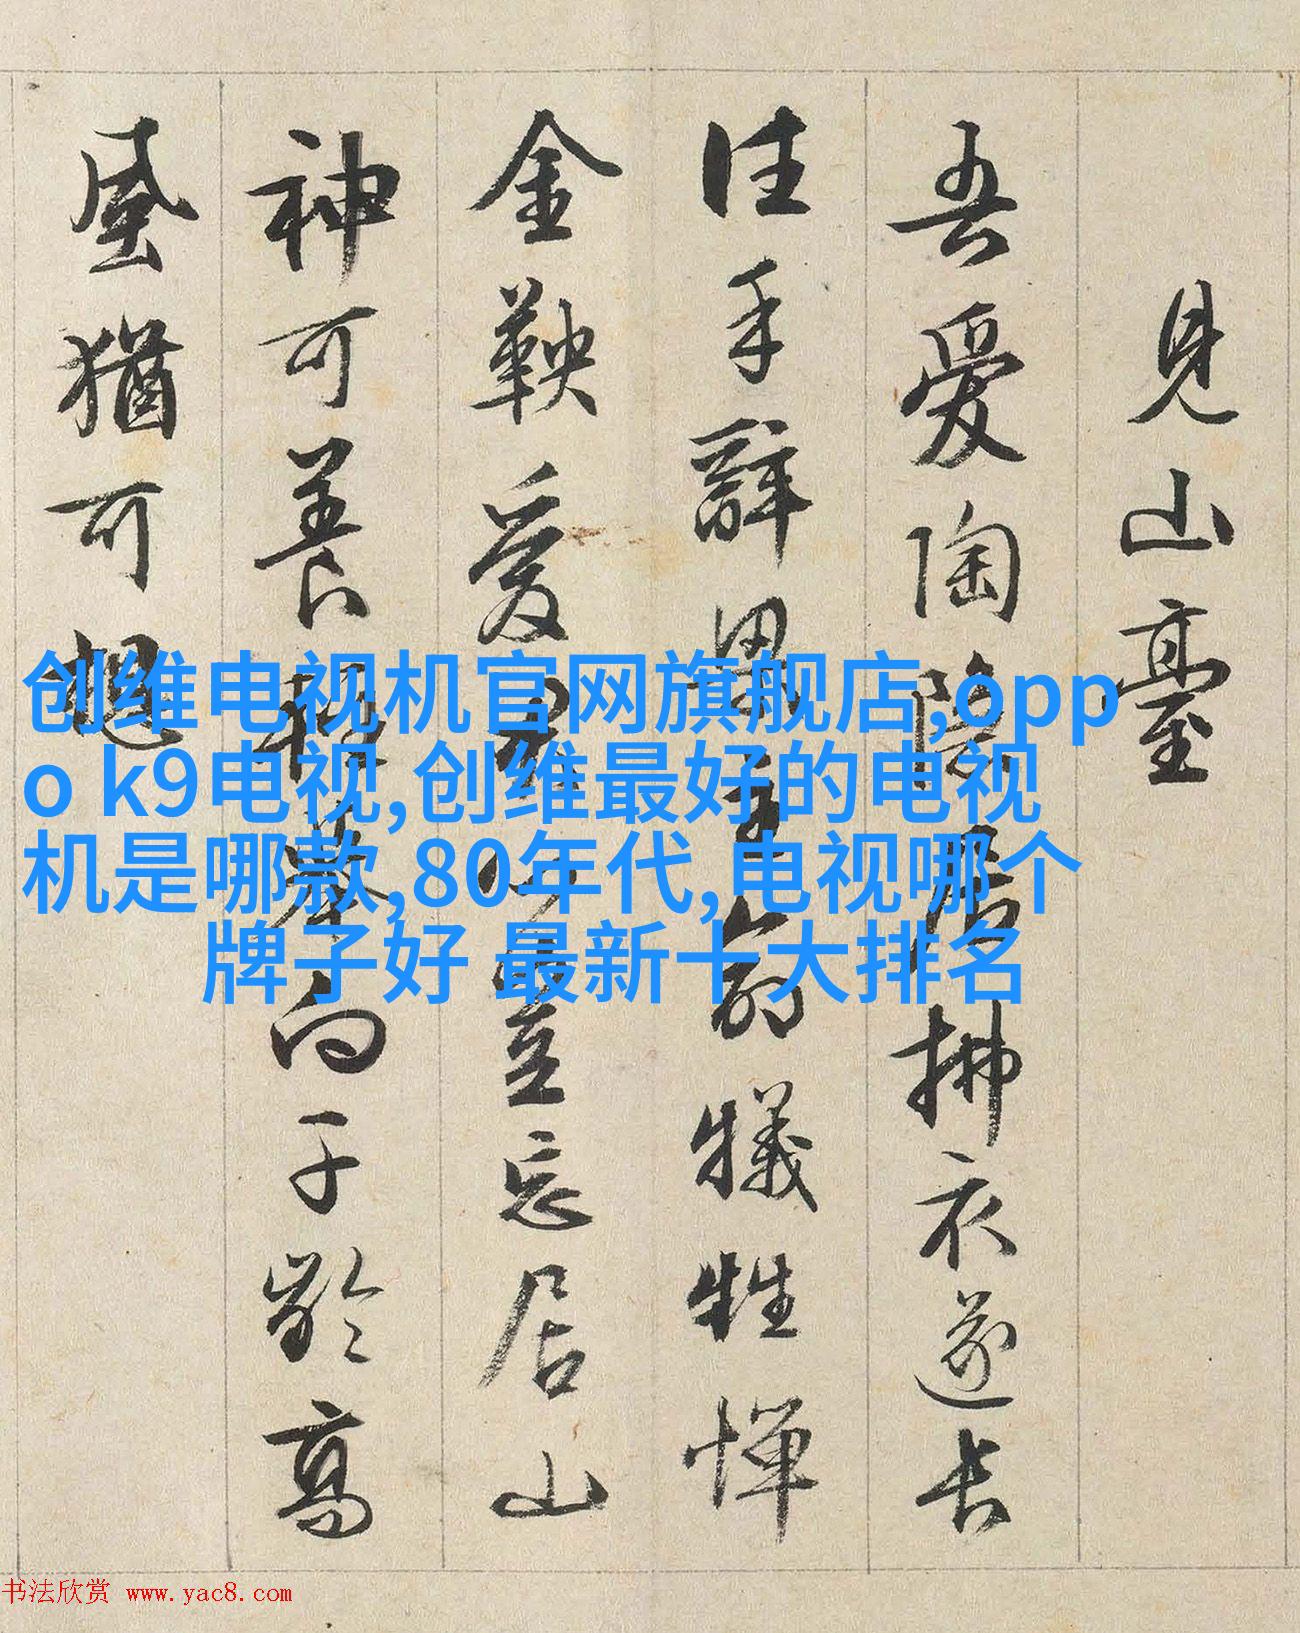 見山臺
吾愛陶隱居拂衣遂長
往手辭梁主命犧牲憚
金鞅愛君心豈忘居山
神可養輕舉向千齡高
風猶可想
创维电视机官网旗舰店,opp
o k9电视,创维最好的电视
机是哪款,80年代,电视哪个
牌子好 最新十大排名
书法欣赏 www.yac8.com